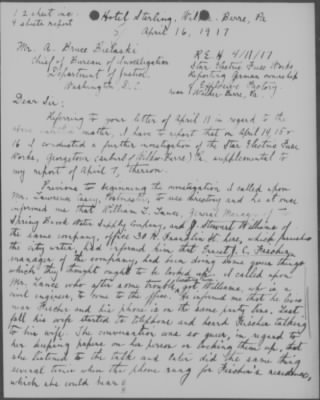 Hotel Sterling, Wilkes-Barre, Pa
April 16, 1917
Mr. A. Bruce Bielaski
Chief of Bureau of Investigation
Department of Justice,
Washington D.C.
R.E.H. 4/18/17
Star Electric Fuse Works
Reporting German ownership
of Explosive Factory
near Wilkes-Barre, Pa
Dear Sir:
Referring to your letter of April 11 in regard to the
above matter, I have to report that on April 14, 15 &
16 I conducted a further investigation of the Star Electric Fuse
Works, Georgetown (suburb of Wilkes-Barre) Pa. supplemental to
my report of April 7, thereon.
Previous to beginning the investigation I called upon
Mr. Lawrence Casey, Postmaster, to use directory and he at once
informed me that William T. Lance,
Spring Brook Water Supply Company, and J. Stewart Williams of
the same company, office 30 N. Franklin St. here, which
the city water, had informed him that Ernest J. C. Fischer,
manager of the company, had been doing some queer things
which they thought ought to be looked up. I called upon
Mr. Lance who after some trouble, got Williams, who is a
civil engineer, to come to the office. He informed me that he lives
near Fischer and his phone is on the same party line. Last
fall his wife started to telephone and heard Fischer talking
to his wife. The conversation was so queer, in regard to
her keeping papers on her person or locking them up, that
she listened to the talk and later did the same thing
several times when the phone rang for Fischer's residence,
which she could hear